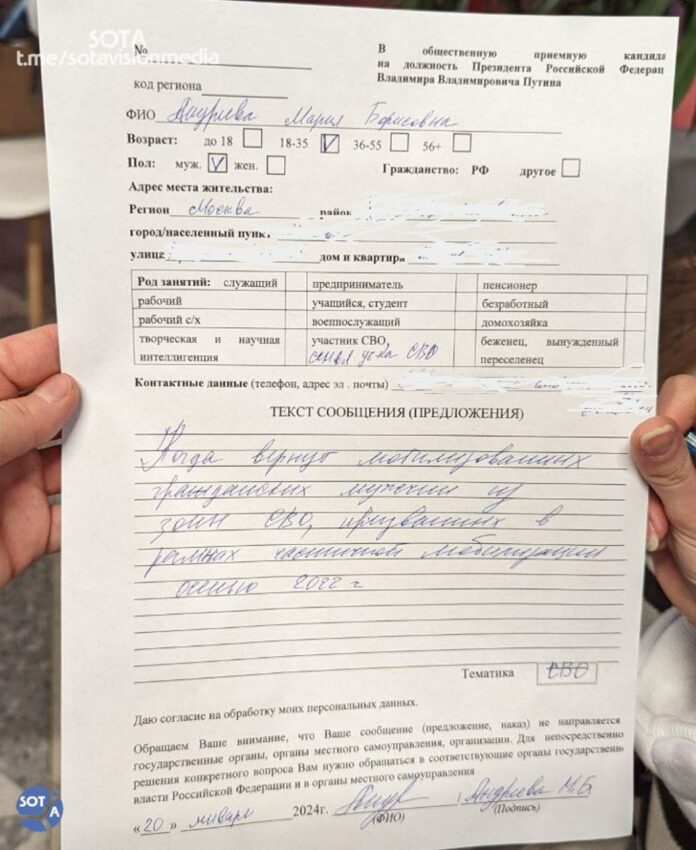 SOTA
t.me/sotavisionmedia
№
В общественную приемную кандида
на должность Президента Российской Федерац
Владимира Владимировича Путина
код региона
ФИО Андреева Мария Борисовна
Возраст: до 18 18-35 V 36-55 56+
Пол: муж. V жен. Гражданство: РФ другое
Адрес места жительства:
Регион Москва район
город/населенный пунк
улица дом и квартира
Род занятий: служащий предприниматель пенсионер
рабочий учащийся, студент безработный
рабочий с/х военнослужащий домохозяйка
творческая и научная участник СВО, беженец, вынужденный
интеллигенция СВО переселенец
Контактные данные (телефон, адрес эл . почты)
ТЕКСТ СООБЩЕНИЯ (ПРЕДЛОЖЕНИЯ)
Когда вернут мобилизованных
гражданских мужчин из
зоны СВО, призванных в
рамках частичной мобилизации
осенью 2022 г
Тематика СВО
Даю согласие на обработку моих персональных данных.
Обращаем Ваше внимание, что Ваше сообщение (предложение, наказ) не направляется
государственные органы, органы местного самоуправления, организации. Для непосредственно
решения конкретного вопроса Вам нужно обращаться в соответствующие органы государственн
власти Российской Федерации и в органы местного самоуправления
«20» января 2024г. / Андреева М.Б.
(ФИО) (Подпись)
SOTA